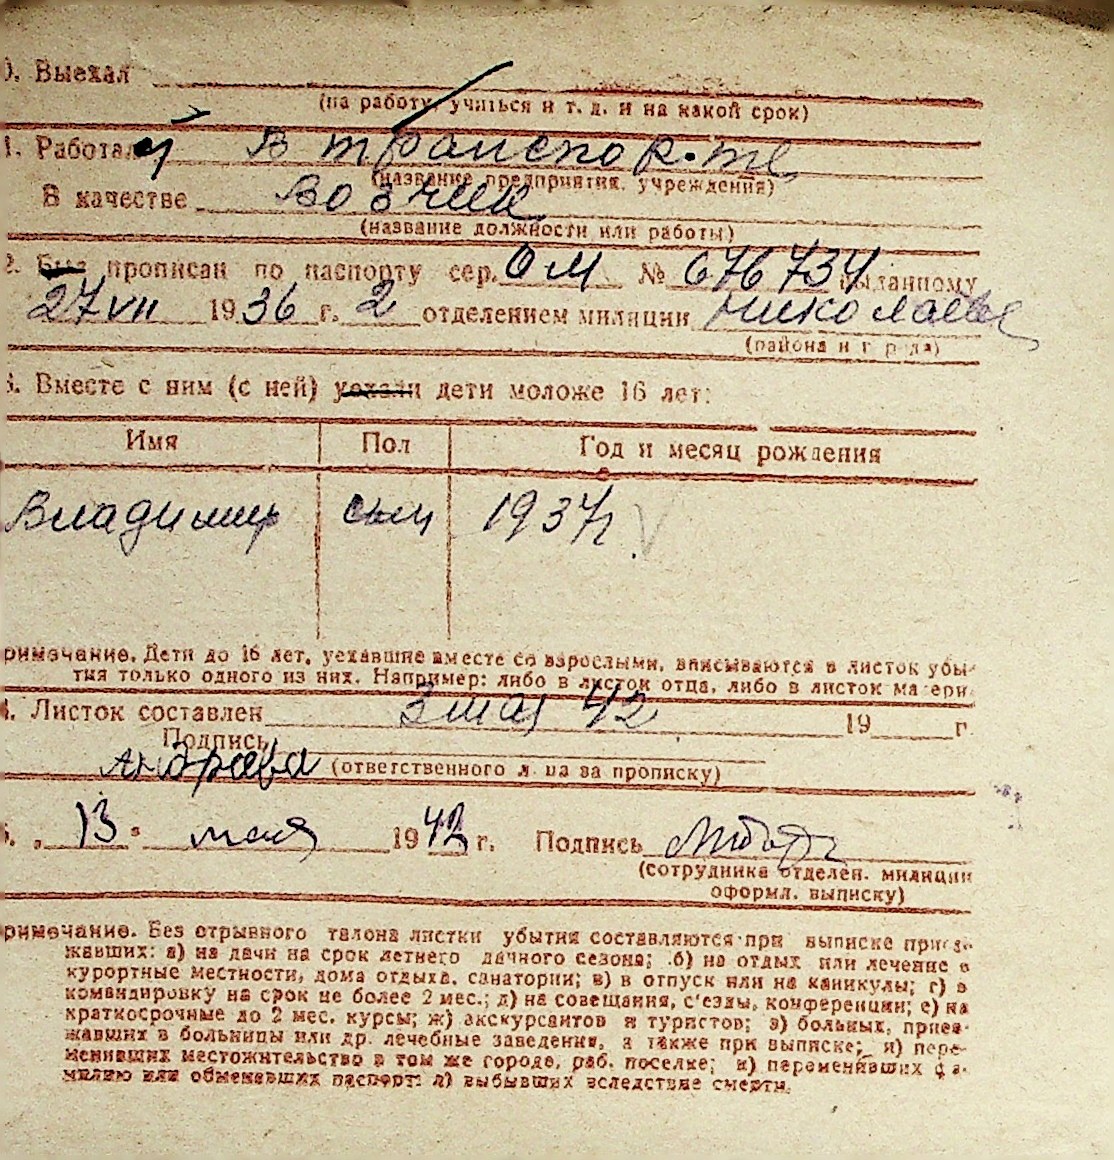 0. Выехал
(на работу, учиться и т. д. и на какой срок)
1. Работал В транспорте
(название предприятия, учреждения)
В качестве Возчик
(название должности или работы)
2. Был прописан по паспорту сер. ОМ № 676734 выданному
27 VII 1936 г. 2 отделением милиции Николаеве
(района и города)
3. Вместе с ним (с ней) уехали дети моложе 16 лет:
Имя Пол Год и месяц рождения
Владимир сын 1937 г.
римечание. Дети до 16 лет, уехавшие вместе со взрослыми, вписываются в листок убы-
тия только одного из них. Например: либо в листок отца, либо в листок матери.
4. Листок составлен 3 мая 42 19 г.
Подпись
(ответственного лица за прописку)
„ 13 " мая 1942 г. Подпись
(сотрудника отделен. милиции
оформл. выписку)
римечание. Без отрывного талона листки убытия составляются при выписке приез-
жавших: а) на дачи на срок летнего дачного сезона; б) на отдых или лечение в
курортные местности, дома отдыха, санатории; в) в отпуск или на каникулы; г) в
командировку на срок не более 2 мес.; д) на совещания, с'езды, конференции; е) на
краткосрочные до 2 мес. курсы; ж) экскурсантов и туристов; з) больных, приез-
жавших в больницы или др. лечебные заведения, а также при выписке; и) пере-
менивших местожительство в том же городе, раб. поселке; к) переменивших фа-
милию или обменявших паспорт; л) выбывших вследствие смерти.